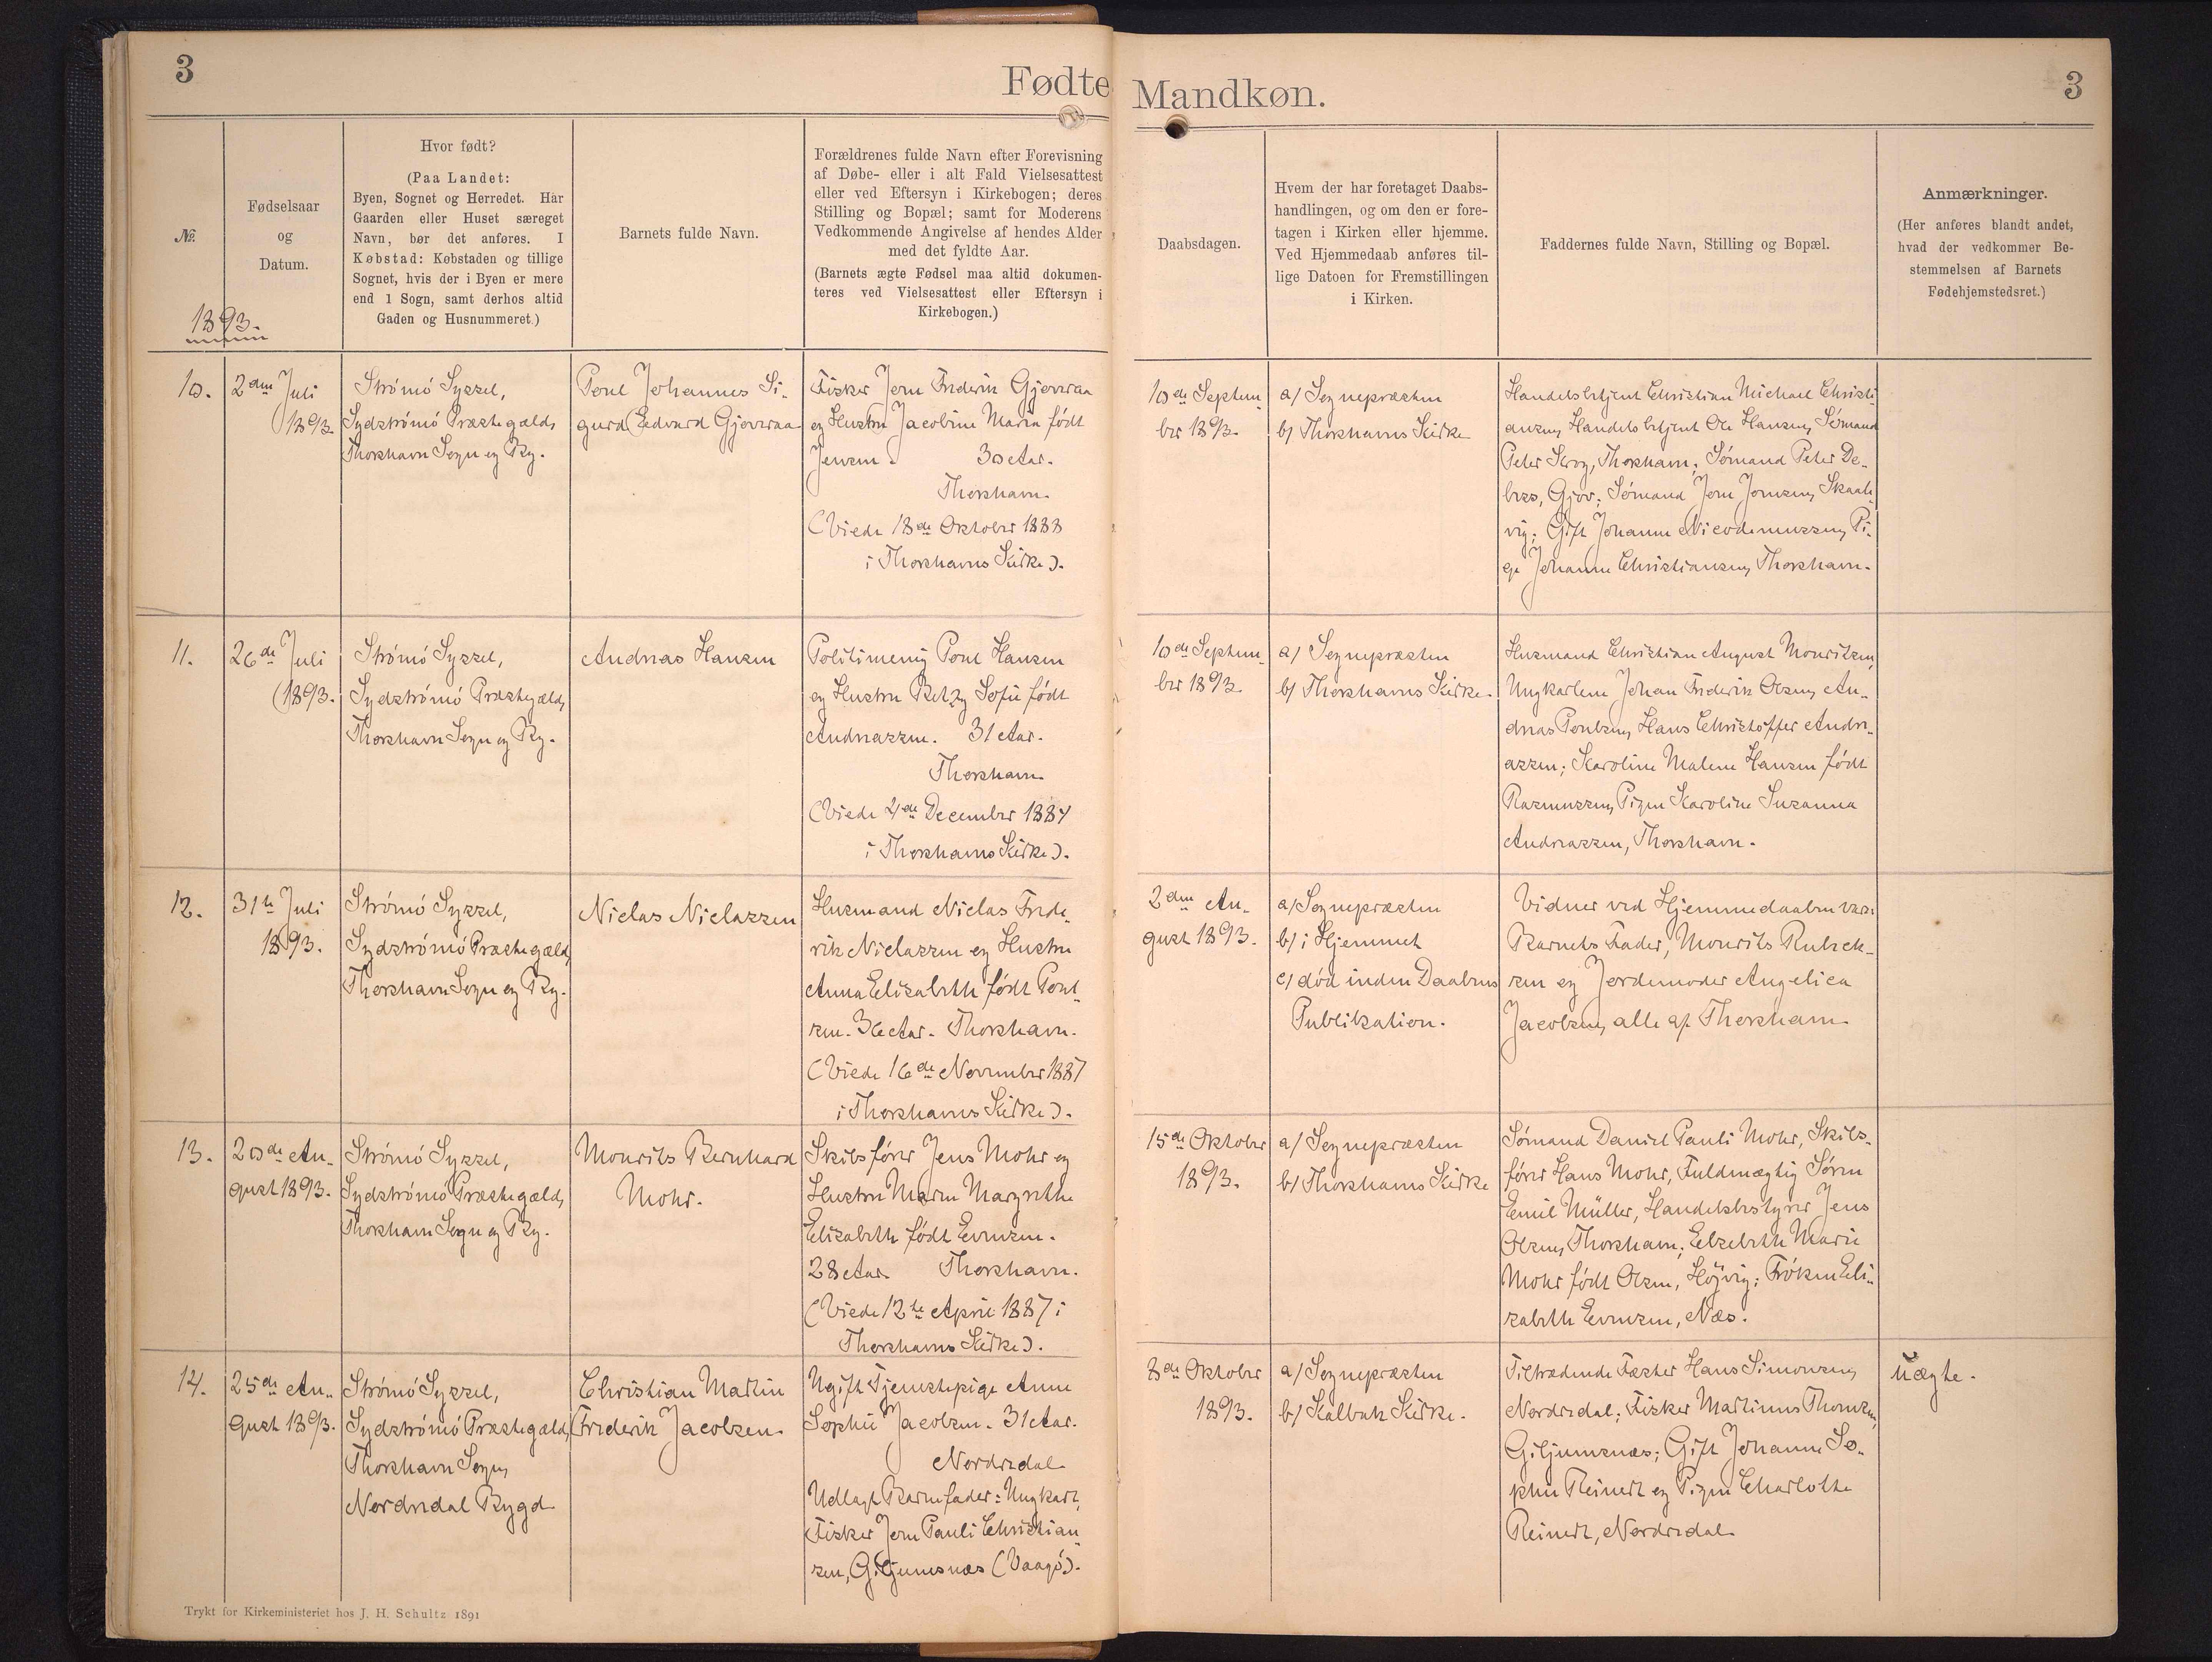 3
Fødte
Mandkøn.
3
№
Fødselsaar
og
Datum.
1893.
Hvor født?
(Paa Landet:
Byen, Sognet og Herredet. Har
Gaarden eller Huset særeget
Navn, bør det anføres. I
Købstad: Købstaden og tillige
Sognet, hvis der i Byen er mere
end 1 Sogn, samt derhos altid
Gaden og Husnummeret.)
Barnets fulde Navn.
Forældrenes fulde Navn efter Forevisning
af Døbe- eller i alt Fald Vielsesattest
eller ved Eftersyn i Kirkebogen; deres
Stilling og Bopæl; samt for Moderens
Vedkommende Angivelse af hendes Alder
med det fyldte Aar.
(Barnets ægte Fødsel maa altid dokumen-
teres ved Vielsesattest eller Eftersyn i
Kirkebogen.)
Daabsdagen.
Hvem der har foretaget Daabs-
handlingen, og om den er fore-
tagen i Kirken eller hjemme.
Ved Hjemmedaab anføres til-
lige Datoen for Fremstillingen
i Kirken.
Faddernes fulde Navn, Stilling og Bopæl.
Anmærkninger.
(Her anføres blandt andet,
hvad der vedkommer Be-
stemmelsen af Barnets
Fødehjemstedsret.)
10.
2den Juli
1893.
Strømø Syssel,
Sydstrømø Præstegæld,
Thorshavn Sogn og By.
Poul Johannes Si-
gurd Edvard Gjoveraa
Fisker Joen Frederik Gjoveraa
og Hustru Jacobine Maria født
Jensen. 30 Aar.
Thorshavn.
(Viede 18de Oktober 1888
i Thorshavns Kirke).
10de Septem-
ber 1893.
a/ Sognepræsten
b/ Thorshavns Kirke
Handelsbetjent Christian Michael Christi-
ansen, Handelsbetjent Ole Hansen, Sømand
Peter Skog, Thorshavn; Sømand Peter De-
bes, Gjov; Sømand Joen Joensen, Skaale-
vig; Gift Johanne Nicodemussen, Pi-
ge Johanne Christiansen, Thorshavn.
11.
26de Juli
1893.
Strømø Syssel,
Sydstrømø Præstegæld,
Thorshavn Sogn og By.
Andreas Hansen
Politimenig Poul Hansen
og Hustru Betzy Sofie født
Andreassen. 31 Aar.
Thorshavn
(Viede 4de December 1884
i Thorshavns Kirke).
10de Septem-
ber 1893.
a/ Sognepræsten
b/ Thorshavns Kirke.
Husmand Christian August Mouritsen,
Ungkarlene Johan Frederik Olsen, An-
dreas Poulsen, Hans Christoffer Andre-
assen; Karoline Malene Hansen født
Rasmussen, Pigen Karoline Susanna
Andreassen, Thorshavn.
12.
31te Juli
1893.
Strømø Syssel,
Sydstrømø Præstegæld,
Thorshavn Sogn og By.
Niclas Niclassen
Husmand Niclas Frede-
rik Niclassen og Hustru
Anna Elisabeth født Poul-
sen. 36 Aar. Thorshavn.
(Viede 16de November 1887
i Thorshavns Kirke).
2den Au-
gust 1893.
a/ Sognepræsten
b/ i Hjemmet
c/ død inden Daabens
Publikation.
Vidner ved Hjemmedaaben vare:
Barnets Fader, Mourits Rubek-
sen og Jordemoder Angelica
Jacobsen, alle af Thorshavn.
13.
20de Au-
gust 1893.
Strømø Syssel,
Sydstrømø Præstegæld,
Thorshavn Sogn og By.
Mourits Bernhard
Mohr.
Skibsfører Jens Mohr og
Hustru Maren Margrethe
Elisabeth født Evensen.
28 Aar. Thorshavn.
(Viede 12te April 1887 i
Thorshavns Kirke).
15de Oktober
1893.
a/ Sognepræsten
b/ Thorshavns Kirke
Sømand Daniel Pauli Mohr, Skibs-
fører Hans Mohr, Fuldmægtig Søren
Emil Müller, Handelsbestyrer Jens
Olsen, Thorshavn; Elsebeth Marie
Mohr født Olsen, Højvig; Frøken Eli-
sabeth Evensen, Næs.
14.
25de Au-
gust 1893.
Strømø Syssel,
Sydstrømø Præstegæld,
Thorshavn Sogn,
Nordredal Bygd
Christian Martin
Frederik Jacobsen.
Ugift Tjenestepige Anne
Sophie Jacobsen. 31 Aar.
Nordredal
Udlagt Barnefader: Ungkarl,
Fisker Joen Pauli Christian-
sen, Giljumsnæs (Vaagø).
8de Oktober
1893.
a/ Sognepræsten
b/ Kalbak Kirke.
Tiltrædende Fæster Hans Simonsen,
Nordredal; Fisker Martinus Thomsen,
Giljumsnæs; Gift Johanne So-
phie Reinert og Pigen Charlotte
Reinert, Nordredal
Uægte.
Trykt for Kirkeministeriet hos J. H. Schultz 1891